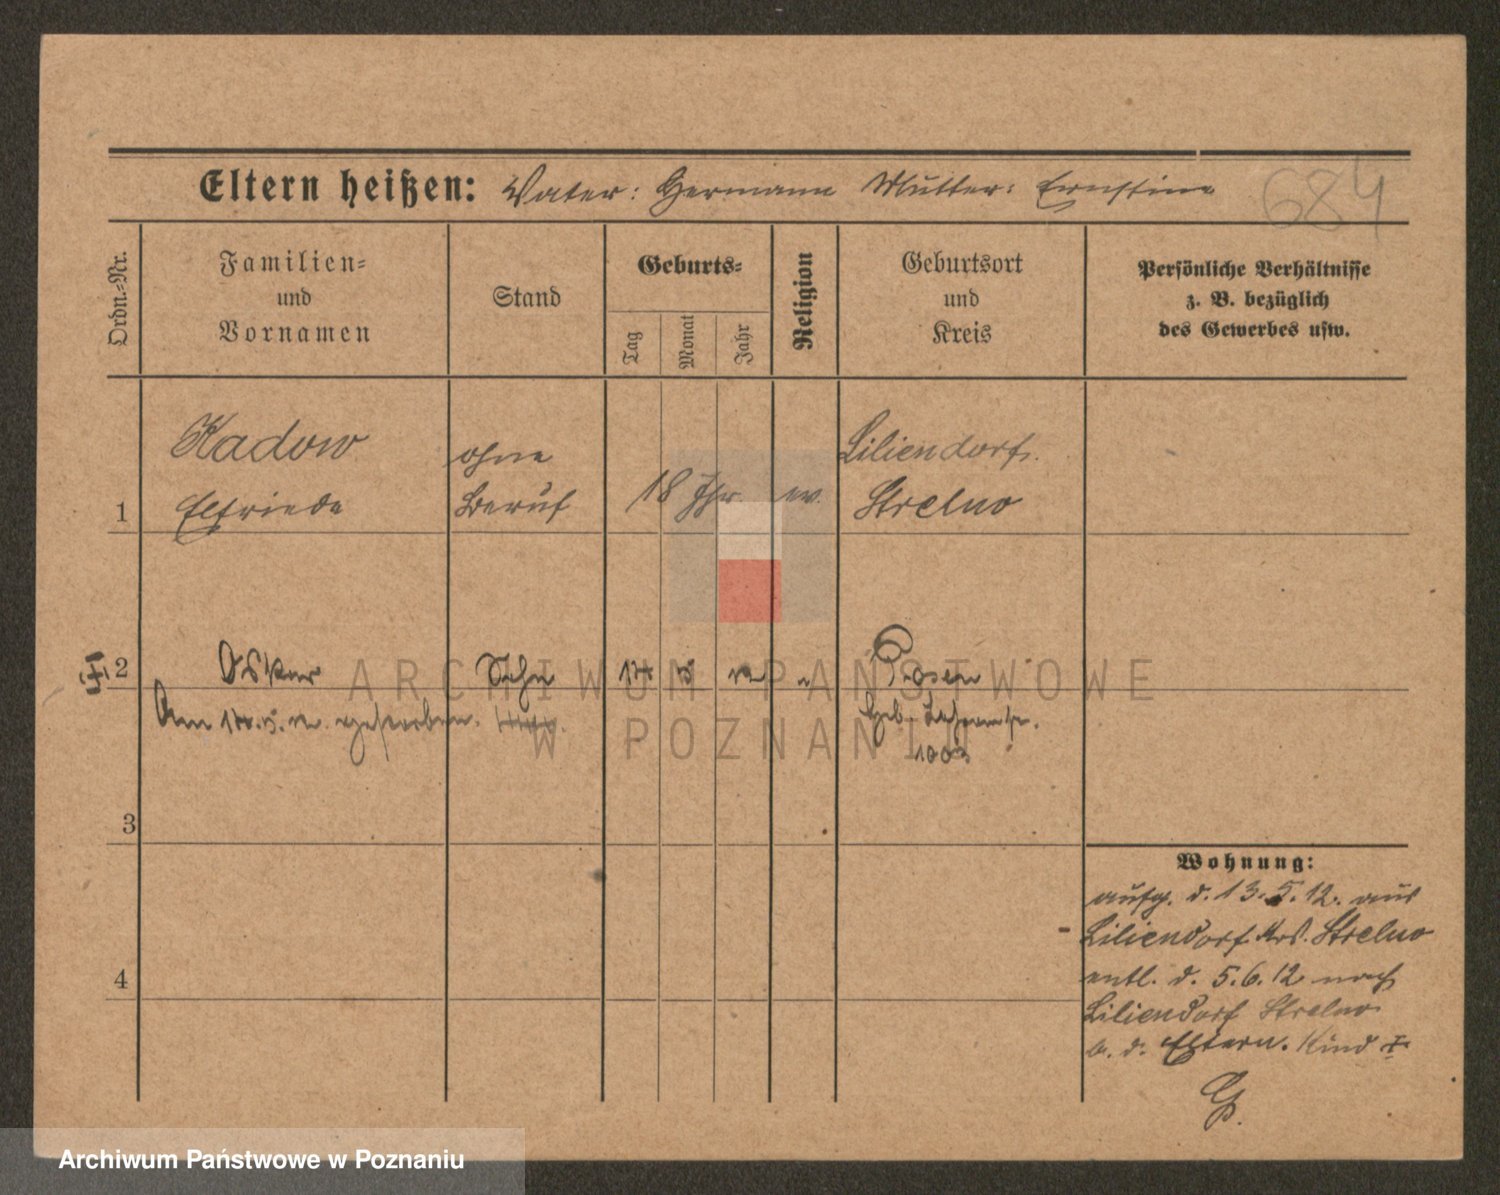 Eltern heißen: Vater: Hermann Mutter: Ernstine
684
Ordn.-Nr.
Familien-
und
Vornamen
Stand
Geburts-
Tag
Monat
Jahr
Religion
Geburtsort
und
Kreis
Persönliche Verhältnisse
z. B. bezüglich
des Gewerbes usw.
1
Kadow
Elfriede
ohne
Beruf
18 Jhr
ev.
Liliendorf
Strelno
2
Oskar
Sohn
Posen
Am gestorben.
Geb.
3
4
Wohnung:
aufg. d. 13.5.12. aus
Liliendorf Krs. Strelno
entl. d. 5.6.12 nach
Liliendorf Strelno
b. d. Eltern. Kind †
ARCHIWUM PAŃSTWOWE
W POZNANIU
Archiwum Państwowe w Poznaniu